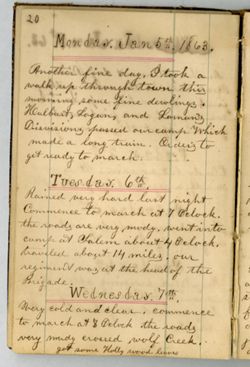 20
Monday. Jan 5th. 1863.
Another fine day, I took a
walk up through town this
morning some fine dewlings.
Hulburt, Logans, and Lamans
Divisions, passed our camp. Which
made a long train. Orders to
get ready to march.
Tuesday. 6th.
Rained very hard last night
Commence to march at 7 Oclock.
the roads are very mudy, went into
camp at Salem about 4 Oclock.
traveled about 14 miles, our
regiment was at the head of the
Brigade.
Wednesday. 7th.
Very cold and clear. commence
to march at 8 Oclock the roads
very mudy crosed wolf Creek.
got some Holly wood